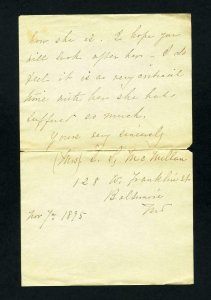 how she is. I hope you
will look after her - I do
feel it is a very critical
time with her she has
suffered so much.
Yours very sincerely
(Mrs) E. G. McMillan
128 W. Franklin St
Baltimore
Md
Nov 7th 1895